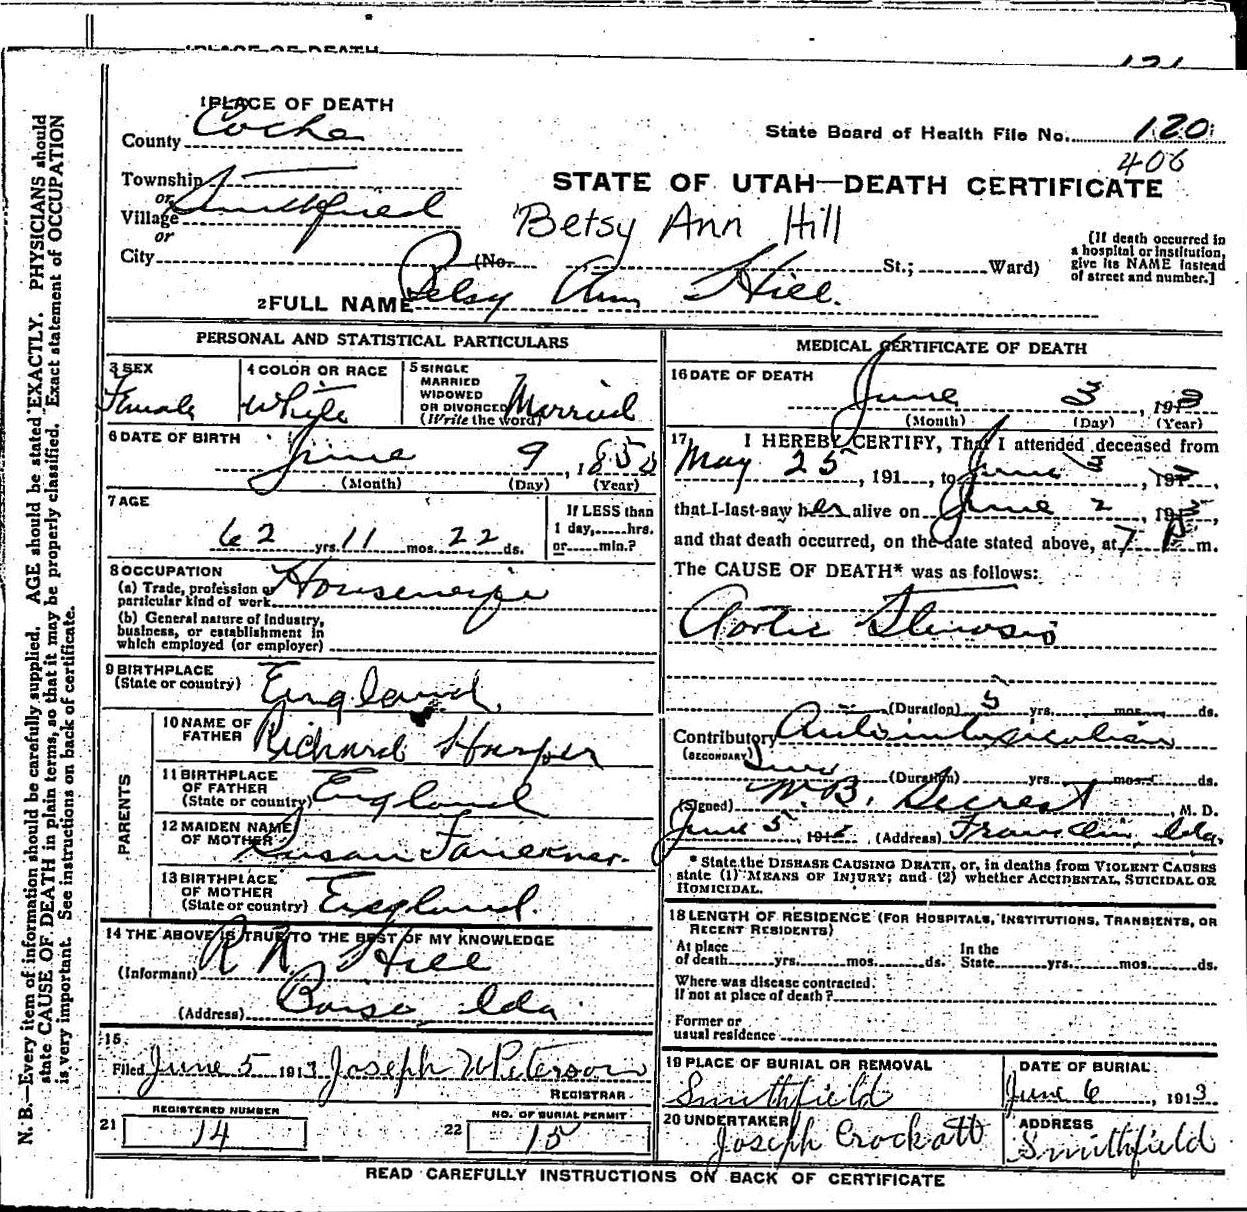 1 PLACE OF DEATH
County Cache
Township
or
Village Smithfield
or
City (No. St.; Ward)
State Board of Health File No. 120
406
STATE OF UTAH—DEATH CERTIFICATE
Betsy Ann Hill
[If death occurred in
a hospital or institution,
give its NAME instead
of street and number.]
2 FULL NAME Betsy Ann Hill.
PERSONAL AND STATISTICAL PARTICULARS
3 SEX
Female
4 COLOR OR RACE
White
5 SINGLE
MARRIED
WIDOWED
OR DIVORCED
(Write the word)
Married
6 DATE OF BIRTH
June 9, 1850
(Month) (Day) (Year)
7 AGE
62 yrs. 11 mos. 22 ds.
If LESS than
1 day, hrs.
or min.?
8 OCCUPATION
(a) Trade, profession or
particular kind of work Housewife
(b) General nature of industry,
business, or establishment in
which employed (or employer)
9 BIRTHPLACE
(State or country) England.
PARENTS
10 NAME OF
FATHER Richard Harper
11 BIRTHPLACE
OF FATHER
(State or country) England
12 MAIDEN NAME
OF MOTHER Susan Faulkner.
13 BIRTHPLACE
OF MOTHER
(State or country) England.
14 THE ABOVE IS TRUE TO THE BEST OF MY KNOWLEDGE
(Informant) R R Hill
(Address) Boise, Ida
15
Filed June 5 1913 Joseph W Peterson
REGISTRAR
REGISTERED NUMBER
21 14
NO. OF BURIAL PERMIT
22 15
MEDICAL CERTIFICATE OF DEATH
16 DATE OF DEATH
June 3, 1913
(Month) (Day) (Year)
17 I HEREBY CERTIFY, That I attended deceased from
May 25, 191 , to June 3, 191
that I last saw her alive on June 2, 191
and that death occurred, on the date stated above, at 7 P m.
The CAUSE OF DEATH* was as follows:
Aortic Stenosis
(Duration) 5 yrs. mos. ds.
Contributory Autointoxication
(SECONDARY)
(Duration) yrs. mos. ds.
(Signed) W B. Secrest, M. D.
June 5, 191 (Address) Franklin, Ida.
* State the DISEASE CAUSING DEATH, or, in deaths from VIOLENT CAUSES
state (1) MEANS OF INJURY; and (2) whether ACCIDENTAL, SUICIDAL OR
HOMICIDAL.
18 LENGTH OF RESIDENCE (FOR HOSPITALS, INSTITUTIONS, TRANSIENTS, OR
RECENT RESIDENTS)
At place In the
of death yrs. mos. ds. State yrs. mos. ds.
Where was disease contracted.
If not at place of death?
Former or
usual residence
19 PLACE OF BURIAL OR REMOVAL
Smithfield
DATE OF BURIAL
June 6, 1913
20 UNDERTAKER
Joseph Crockatt
ADDRESS
Smithfield
READ CAREFULLY INSTRUCTIONS ON BACK OF CERTIFICATE
N. B.—Every item of information should be carefully supplied. AGE should be stated EXACTLY. PHYSICIANS should
state CAUSE OF DEATH in plain terms, so that it may be properly classified. Exact statement of OCCUPATION
is very important. See instructions on back of certificate.